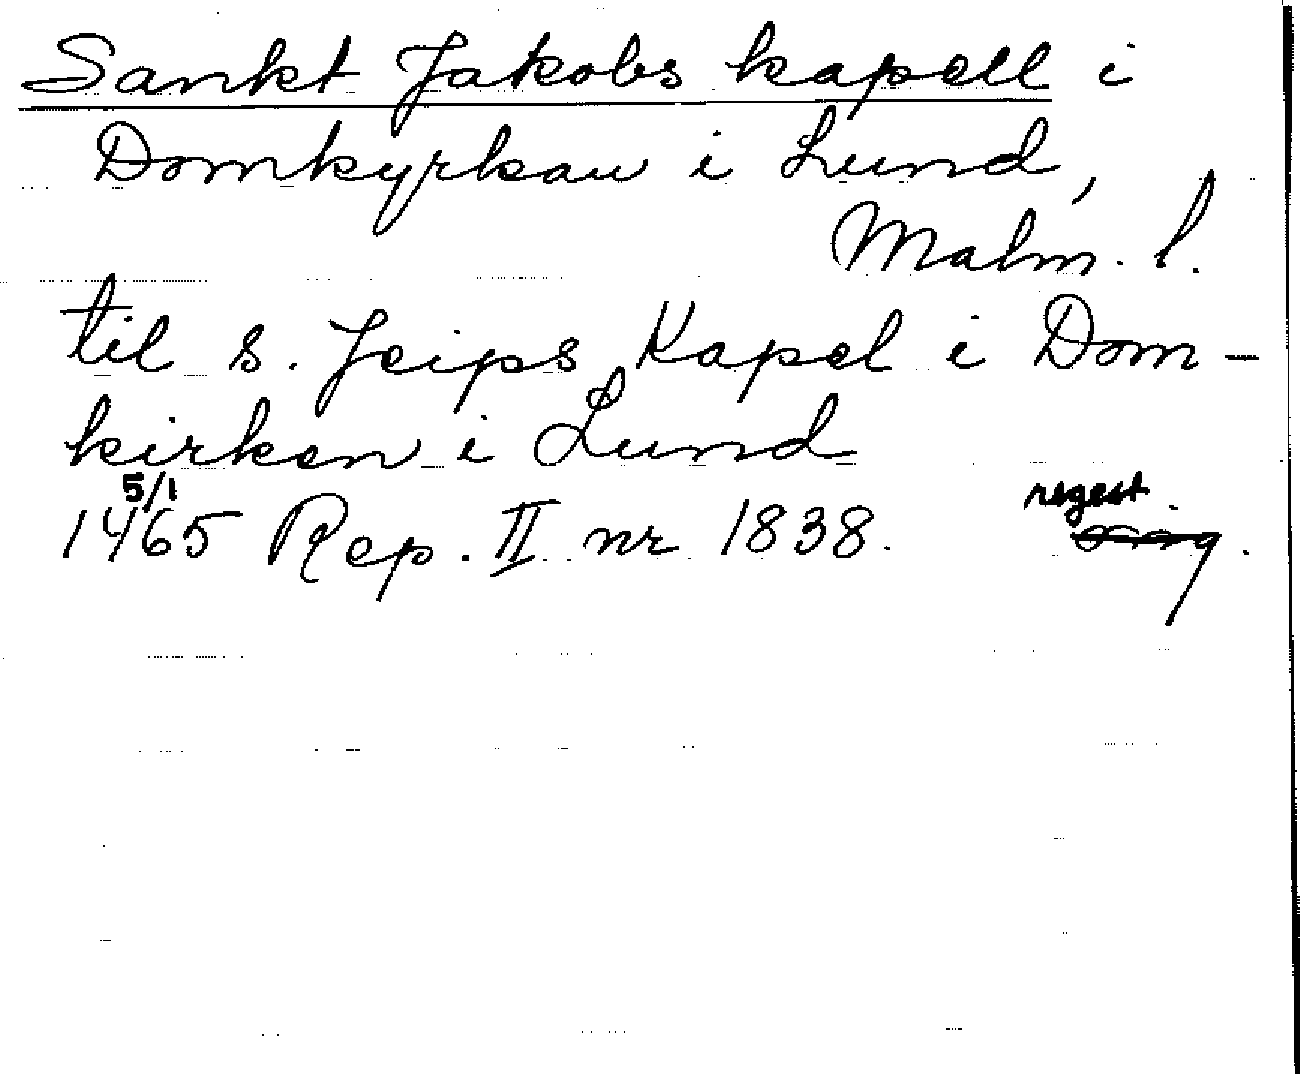 Sankt Jakobs kapell i
Domkyrkan i Lund,
Malm. l.
til s. Jeips Kapel i Dom-
kirken i Lund
5/1
1465 Rep. II nr 1838.
regest
orig.